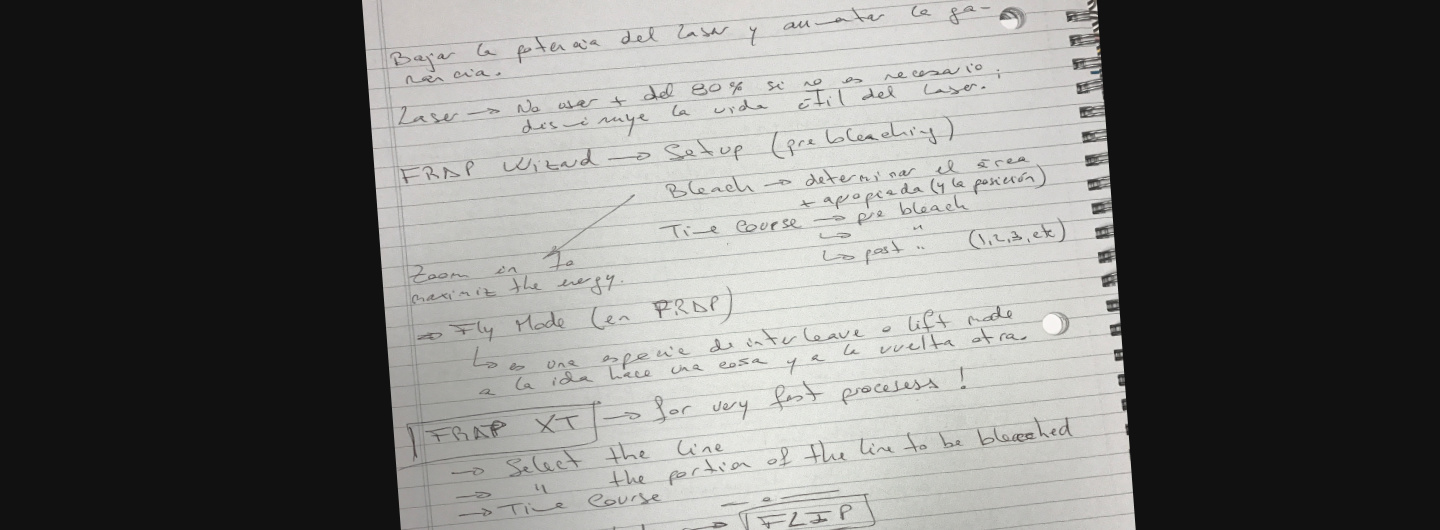 Bajar la potencia del Laser y aumentar la ga-
nancia.
Laser → No usar + del 80% si no es necesario;
disminuye la vida útil del Laser.
FRAP Wizard → Setup (prebleaching)
Bleach → determinar el área
+ apropiada (y la posición)
Time Course → pre bleach
↳ "
↳ post " (1,2,3, etc)
Zoom in to
maximiz the energy.
⇒ Fly Mode (en FRAP)
↳ es una especie de interleave o lift mode
a la ida hace una cosa y a la vuelta otra.
FRAP XT → for very fast procesess!
→ Select the line
→ " the portion of the line to be bleached
→ Time Course
→ FLIP